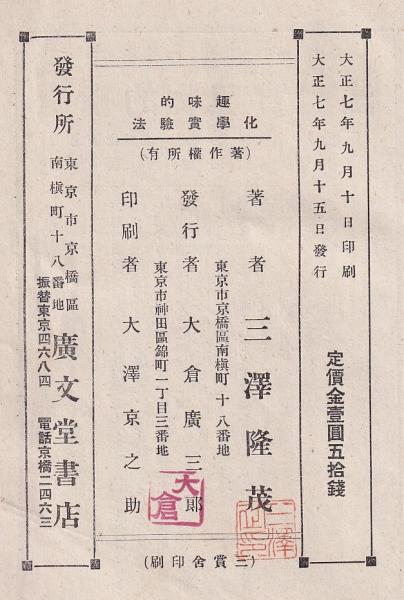 大正七年九月十日印刷
大正七年九月十五日發行
定價金壹圓五拾錢
趣味的
化學實驗法
(著作權所有)
著者 三澤隆茂
東京市京橋區南槇町十八番地
發行者 大倉廣三郎
東京市神田區錦町一丁目三番地
印刷者 大澤京之助
大倉
(三賞舍印刷)
發行所
東京市京橋區
南槇町十八番地
廣文堂書店
振替東京四六八四
電話京橋二四六三